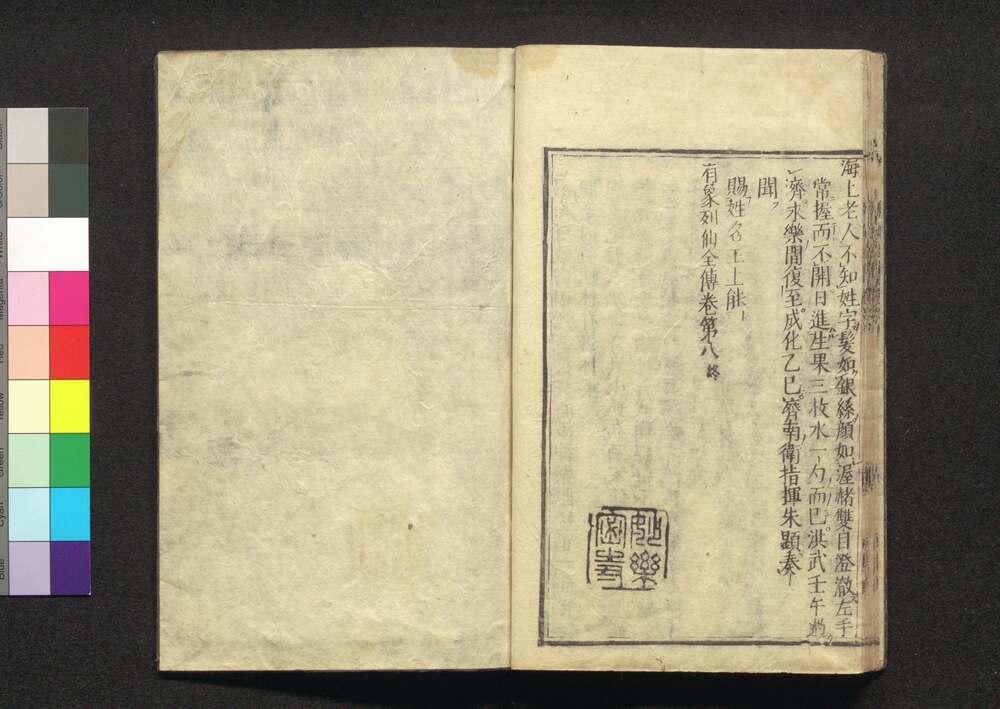 海上老人不知姓字髮如銀絲顔如渥赭雙目澄澈左手
常握而不開日進生果三枚水一勺而已洪武壬午過
濟永樂間復至成化乙巳濟南衛指揮朱顯奏
聞
賜姓名王士能
有象列仙全傳卷第八終